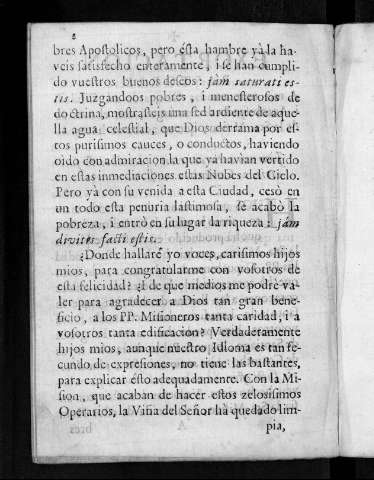 2
bres Apostolicos, pero ésta hambre yà la ha-
veis satisfecho enteramente, i se han cumpli-
do vuestros buenos deseos: jám saturati es-
tis. Juzgandoos pobres, i menesterosos de
doctrina, mostrasteis una sed ardiente de aque-
lla agua celestial, que Dios derrama por es-
tos purisimos cauces, o conductos, haviendo
oido con admiracion la que ya havian vertido
en estas inmediaciones estas Nubes del Cielo.
Pero yà con su venida a esta Ciudad, cesò en
un todo esta penuria lastimosa, se acabò la
pobreza, i entrò en su lugar la riqueza: jám
divites facti estis.
¿Donde hallaré yo voces, carisimos hijos
mios, para congratularme con vosotros de
esta felicidad? ¿I de que medios me podrè va-
ler para agradecer a Dios tan gran bene-
ficio, a los PP. Misioneros tanta caridad, i a
vosotros tanta edificacion? Verdaderamente
hijos mios, aunque nuestro Idioma es tan fe-
cundo de expresiones, no tiene las bastantes,
para explicar ésto adequadamente. Con la Mi-
sion, que acaban de hacer estos zelosisimos
Operarios, la Viña del Señor hà quedado lim-
pia,